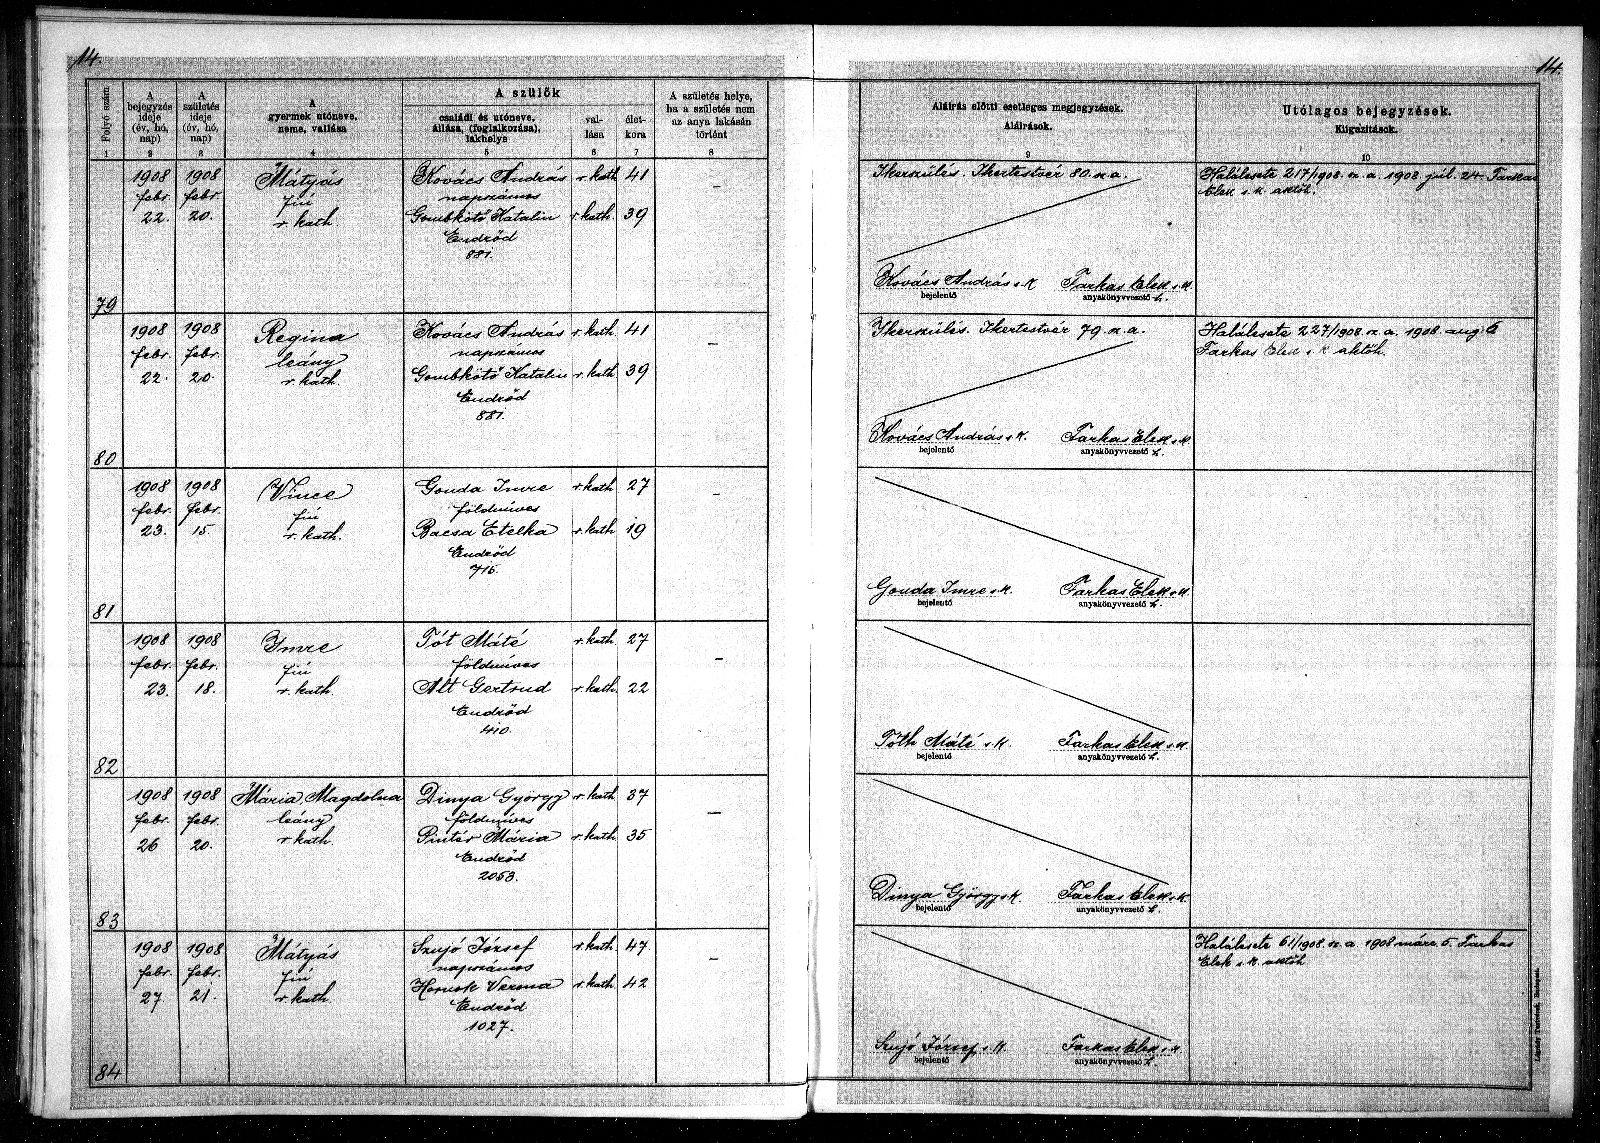 14.
14.
Folyó szám
A bejegyzés ideje (év, hó, nap)
A születés ideje (év, hó, nap)
A gyermek utóneve, neme, vallása
A szülők
családi és utóneve, állása, (foglalkozása), lakhelye
vallása
életkora
A születés helye, ha a születés nem az anya lakásán történt
Aláírás előtti esetleges megjegyzések.
Aláírások.
Utólagos bejegyzések.
Kiigazítások.
1 2 3 4 5 6 7 8 9 10
79
1908 febr. 22.
1908 febr. 20.
Mátyás
fiú
r. kath.
Kovács András r. kath. 41
napszámos
Gombkötő Katalin r. kath. 39
Endrőd
881.
–
Ikerszülés. Ikertestvér 80. sz. a.
Kovács András s. k.
bejelentő
Farkas Elek s. k.
anyakönyvvezető h.
Halálesete 217/1908. sz. a. 1908. júl. 24. Farkas
Elek s. k. aktőh.
80
1908 febr. 22.
1908 febr. 20.
Regina
leány
r. kath.
Kovács András r. kath. 41
napszámos
Gombkötő Katalin r. kath. 39
Endrőd
881.
–
Ikerszülés. Ikertestvér 79. sz. a.
Kovács András s. k.
bejelentő
Farkas Elek s. k.
anyakönyvvezető h.
Halálesete 227/1908. sz. a. 1908. aug. 6
Farkas Elek s. k. aktőh.
81
1908 febr. 23.
1908 febr. 15.
Vince
fiú
r. kath.
Gonda Imre r. kath. 27
földműves
Bacsa Etelka r. kath. 19
Endrőd
715.
–
Gonda Imre s. k.
bejelentő
Farkas Elek s. k.
anyakönyvvezető h.
82
1908 febr. 23.
1908 febr. 18.
Imre
fiú
r. kath.
Tót Máté r. kath. 27
földműves
Alt Gertrud r. kath. 22
Endrőd
410.
–
Tóth Máté s. k.
bejelentő
Farkas Elek s. k.
anyakönyvvezető h.
83
1908 febr. 26
1908 febr. 20.
Mária Magdolna
leány
r. kath.
Dinya György r. kath. 37
földműves
Pintér Mária r. kath. 35
Endrőd
2053.
–
Dinya György s. k.
bejelentő
Farkas Elek s. k.
anyakönyvvezető h.
84
1908 febr. 27
1908 febr. 21.
Mátyás
fiú
r. kath.
Szujó József r. kath. 47
napszámos
Hornok Verona r. kath. 42
Endrőd
1027.
–
Szujó József s. k.
bejelentő
Farkas Elek s. k.
anyakönyvvezető h.
Halálesete 61/1908. sz. a. 1908 márc. 5. Farkas
Elek s. k. aktőh